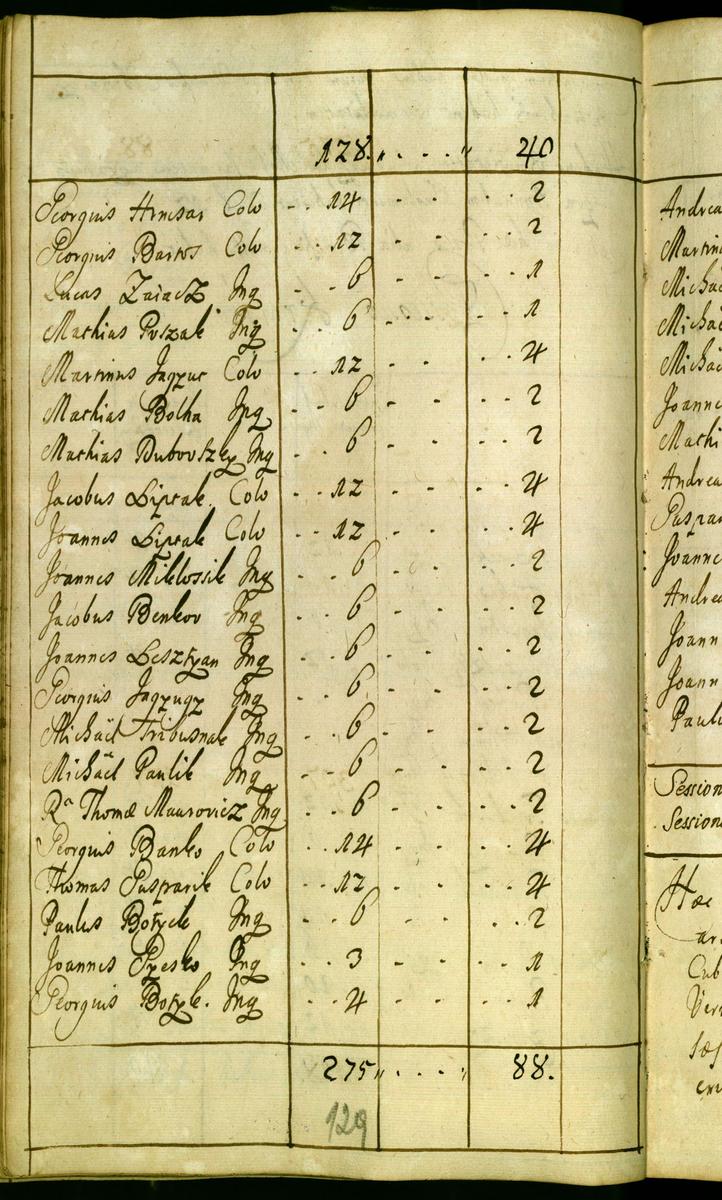 128. „ . . . „ 40
Georgius Hrncsar Colo . . 14 . . . . 2
Georgius Bartos Colo . . 12 . . . . 2
Lucas Zaiacz Inq . . 6 . . . . 1
Mathias Puszak Inq . . 6 . . . . 1
Martinus Colo . . 12 . . . . 4
Mathias Botka Inq . . 6 . . . . 2
Mathias Dubovszky Inq . . 6 . . . . 2
Jacobus Liptak Colo . . 12 . . . . 4
Joannes Liptak Colo . . 12 . . . . 4
Joannes Miklossik Inq . . 6 . . . . 2
Jacobus Benkov Inq . . 6 . . . . 2
Joannes Lesztyan Inq . . 6 . . . . 2
Georgius Inq . . 6 . . . . 2
Michäel Tribusnak Inq . . 6 . . . . 2
Michäel Paulik Inq . . 6 . . . . 2
Ra Thomæ Maurovicz Inq . . 6 . . . . 2
Georgius Banko Colo . . 14 . . . . 4
Thomas Gasparik Colo . . 12 . . . . 4
Paulus Inq . . 6 . . . . 2
Joannes Inq . . 3 . . . . 1
Georgius Inq . . 4 . . . . 1
275 „ . . . „ 88.
129
Andrea
Martin
Micha
Micha
Micha
Joanne
Mathi
Andrea
Gaspar
Joanne
Andrea
Joann
Joann
Paulu
Session
Session
Hæ
ar
Cub
Ver